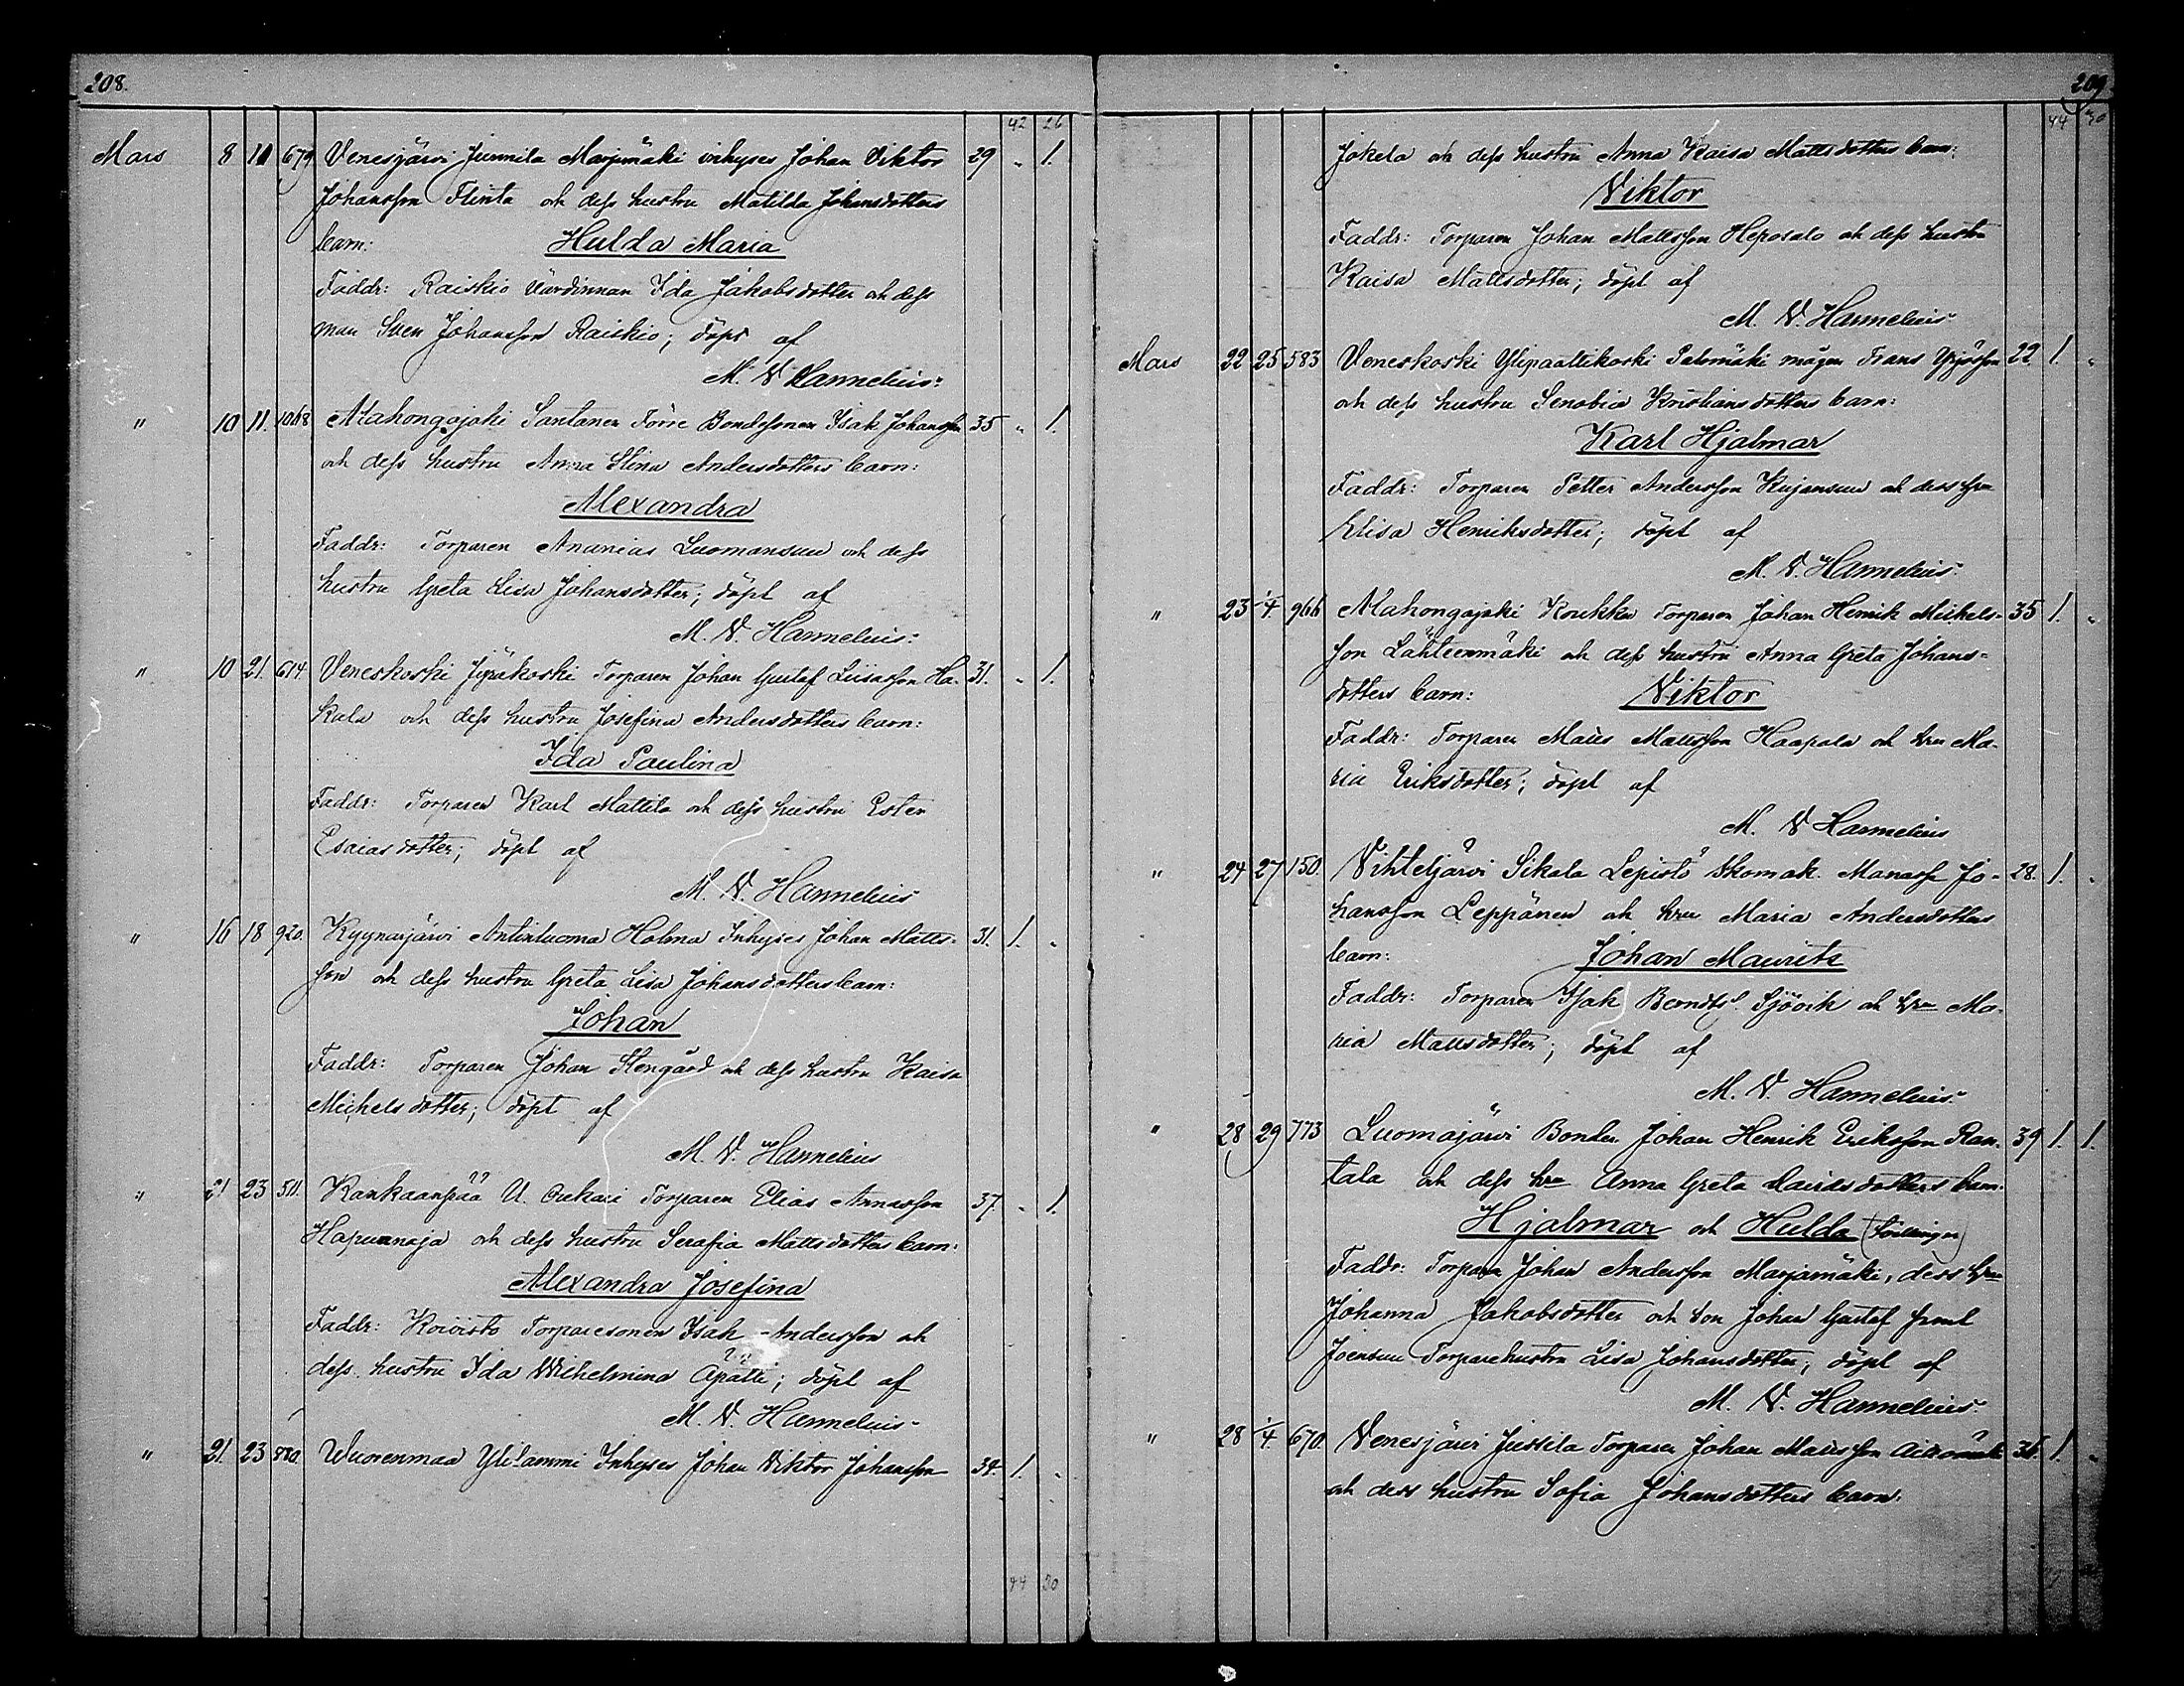 208.
42 26
Mars 8 11 679 Venesjärvi Junnila Marjumäki inhyses Johan Viktor 29 " 1.
Johansson Flinta och dess hustru Matilda Johansdotters
barn: Hulda Maria
Faddr: Raiskio värdinnan Ida Jakobsdotter och dess
man Sven Johansson Raiskio; döpt af
M. V. Hannelius.
" 10 11. 1068 Alahongajoki Santanen Förre Bondesonen Isak Johansson 35 " 1.
och dess hustru Anna Stina Andersdotters barn:
Alexandra
Faddr: Torparen Ananias Luomansuu och dess
hustru Greta Lisa Johansdotter; döpt af
M. V. Hannelius.
" 10 21. 614 Veneskoski Jyräkoski Torparen Johan Gustaf Liisasson Ha- 31. " 1.
kala och dess hustru Josefina Andersdotters barn:
Ida Paulina
Faddr: Torparen Karl Mattila och dess hustru Ester
Esaiasdotter; döpt af
M. V. Hannelius
" 16 18 920. Kyynärjärvi Antinluoma Holma Inhyses Johan Matts- 31. 1. "
son och dess hustru Greta Lisa Johansdotters barn:
Johan
Faddr: Torparen Johan Stengård och dess hustru Kaisa
Michelsdotter; döpt af
M. V. Hannelius
" 21 23 511. Kankaanpää U. Torparen Elias Annasson 37. " 1.
Hapuanoja och dess hustru Serafia Mattsdotters barn:
Alexandra Josefina
Faddr: Koivisto Torparesonen Isak Andersson och
dess hustru Ida Wilhelmina Apatti; döpt af
M. V. Hannelius.
" 21. 23 880. Wuorenmaa Ylilammi Inhyses Johan Viktor Johansson 34. 1. "
44 30
209.
44 30
Jokela och dess hustru Anna Kaisa Mattsdotters barn:
Viktor
Faddr: Torparen Johan Mattsson Heposalo och dess hustru
Kaisa Mattsdotter; döpt af
M. V. Hannelius
Mars 22 25 583 Veneskoski Ylipaattikoski Salomäki mågen Frans Yrjösson 22. 1. "
och dess hustru Senobia Kristiansdotters barn:
Karl Hjalmar
Faddr: Torparen Petter Andersson Kujansuu och dess hru
Elisa Henriksdotter; döpt af
M. V. Hannelius.
" 23 1/4 966 Alahongajoki Koukku Torparen Johan Henrik Michels- 35 1. "
son Lähteenmäki och dess hustru Anna Greta Johans-
dotters barn: Viktor
Faddr: Torparen Matts Mattsson Haapala och hru Ma-
ria Eriksdotter; döpt af
M. V. Hannelius
" 24 27 150. Vihteljärvi Sikala Lepistö Skomak. Manasse Jo- 28. 1. "
hansson Leppänen och hru Maria Andersdotters
barn: Johan Maurits
Faddr: Torparen Isak Berndts. Sjövik och hru Ma-
ria Mattsdotter; döpt af
M. V. Hannelius.
" 28 29 773 Luomajärvi Bonden Johan Henrik Eriksson Ran- 39 1. 1.
tala och dess hru Anna Greta Davidsdotters barn:
Hjalmar och Hulda (Tvillingar)
Faddr: Torparen Johan Andersson Marjamäki, dess hru
Johanna Jakobsdotter och son Johan Gustaf samt
Joensuu Torparehustru Lisa Johansdotter; döpt af
M. V. Hannelius.
" 28 1/4 670. Venesjärvi Jussila Torparen Johan Mattsson 36. 1. "
och dess hustru Sofia Johansdotters barn: